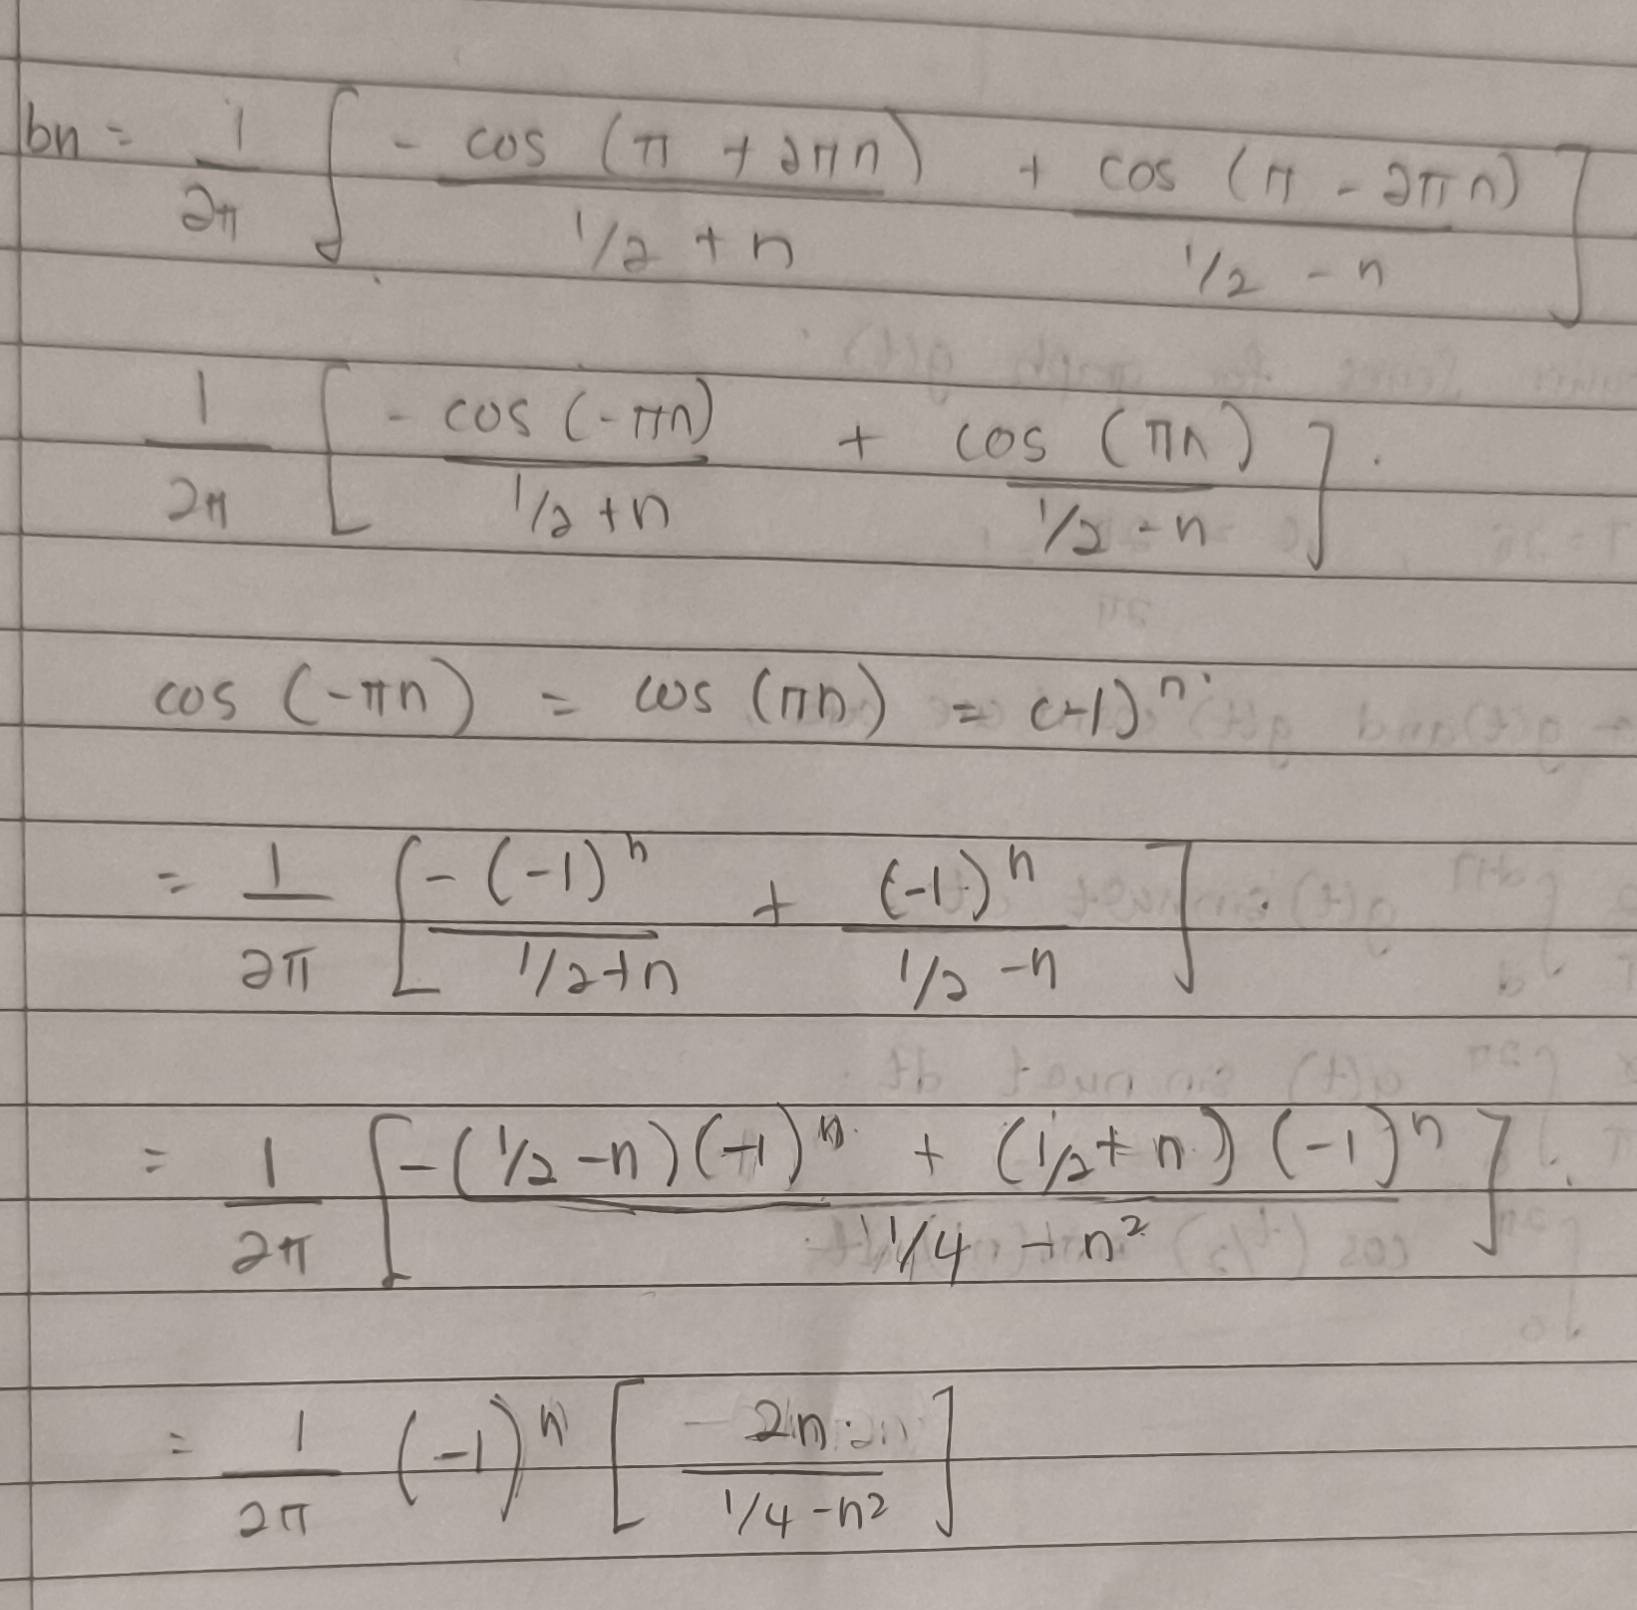 bn = 1/2π [ - cos (π + 2πn) / (1/2 + n) + cos (π - 2πn) / (1/2 - n) ]
1/2π [ - cos (-πn) / (1/2 + n) + cos (πn) / (1/2 - n) ].
cos (-πn) = cos (πn) = (-1)^n.
= 1/2π [ - (-1)^n / (1/2 + n) + (-1)^n / (1/2 - n) ].
= 1/2π [ - (1/2 - n) (-1)^n + (1/2 + n) (-1)^n / (1/4 - n²) ]
= 1/2π (-1)^n [ - 2n / (1/4 - n²) ]